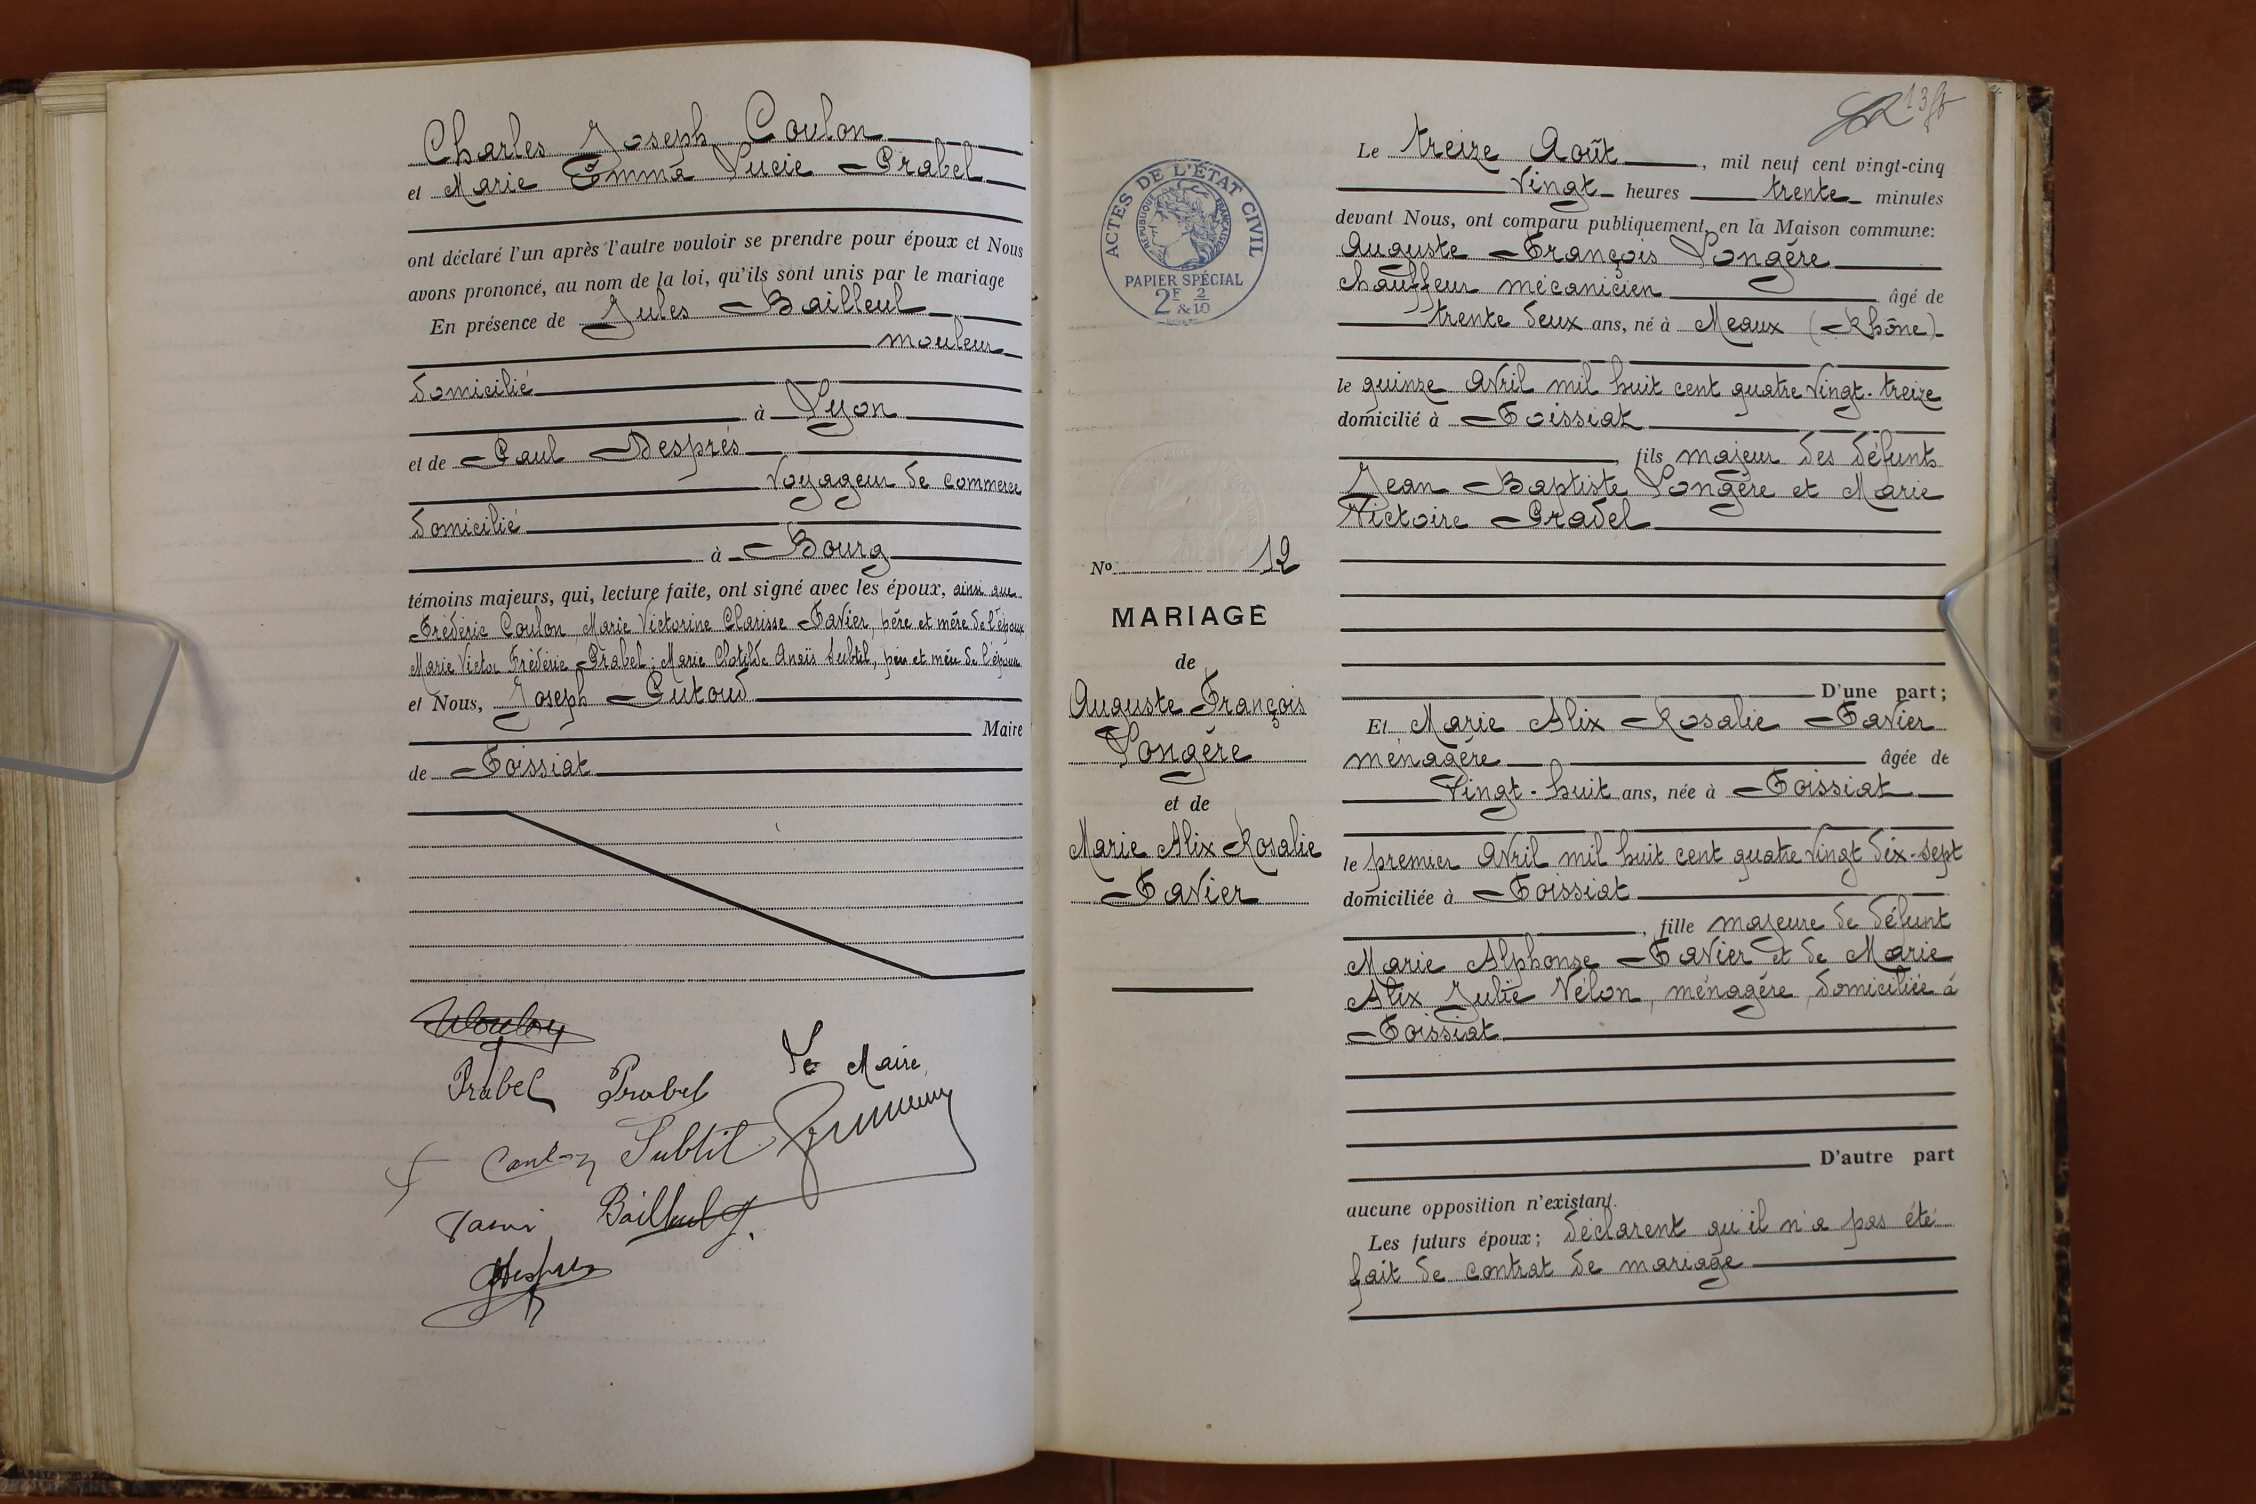 Charles Joseph Coulon
et Marie Emma Lucie Prabel
ont déclaré l'un après l'autre vouloir se prendre pour époux et Nous
avons prononcé, au nom de la loi, qu'ils sont unis par le mariage
En présence de Jules Bailleul
mouleur
domicilié
à Lyon
et de Paul Després
voyageur de commerce
domicilié
à Bourg
témoins majeurs, qui, lecture faite, ont signé avec les époux, ainsi que
Frédéric Coulon Marie Victorine Clarisse Favier, père et mère de l'époux
Marie Victor Frédéric Prabel; Marie Clotilde Anaïs Subtil, père et mère de l'épouse
et Nous, Joseph Putoud
Maire
de Foissiat
Prabel Prabel Le Maire,
Coulon Subtil
Bailleul J.
Després
13
Le treize Août, mil neuf cent vingt-cinq
vingt heures trente minutes
devant Nous, ont comparu publiquement en la Maison commune:
Auguste François Longère
chauffeur mécanicien âgé de
trente deux ans, né à Meaux (Rhône)
le quinze Avril mil huit cent quatre vingt-treize
domicilié à Foissiat
fils majeur des défunts
Jean Baptiste Longère et Marie
Victoire Pradel
D'une part;
Et Marie Alix Rosalie Favier
ménagère âgée de
vingt-huit ans, née à Foissiat
le premier Avril mil huit cent quatre vingt dix-sept
domiciliée à Foissiat
, fille majeure de défunt
Marie Alphonse Favier et de Marie
Alix Julie Vélon, ménagère, domiciliée à
Foissiat
D'autre part
aucune opposition n'existant.
Les futurs époux; déclarent qu'il n'a pas été
fait de contrat de mariage
ACTES DE L'ÉTAT CIVIL
RÉPUBLIQUE FRANÇAISE
PAPIER SPÉCIAL
2F & 2/10
No 12
MARIAGE
de
Auguste François
Longère
et de
Marie Alix Rosalie
Favier